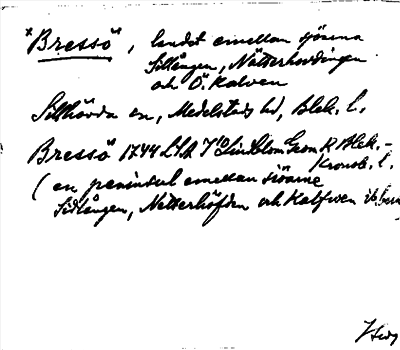 *Bressö, landet emellan sjöarna
Sillången, Nätterhövdingen
och Ö. Kalven
Sillhövda sn, Medelstads hd, Blek. l.
Bressö 1744 LSA J Lindblom Geom K. Blek.-
Kronob. l.
(en peninsul emellan siöarne
Sidlången, Netterhöfden och Kalfwen ib.